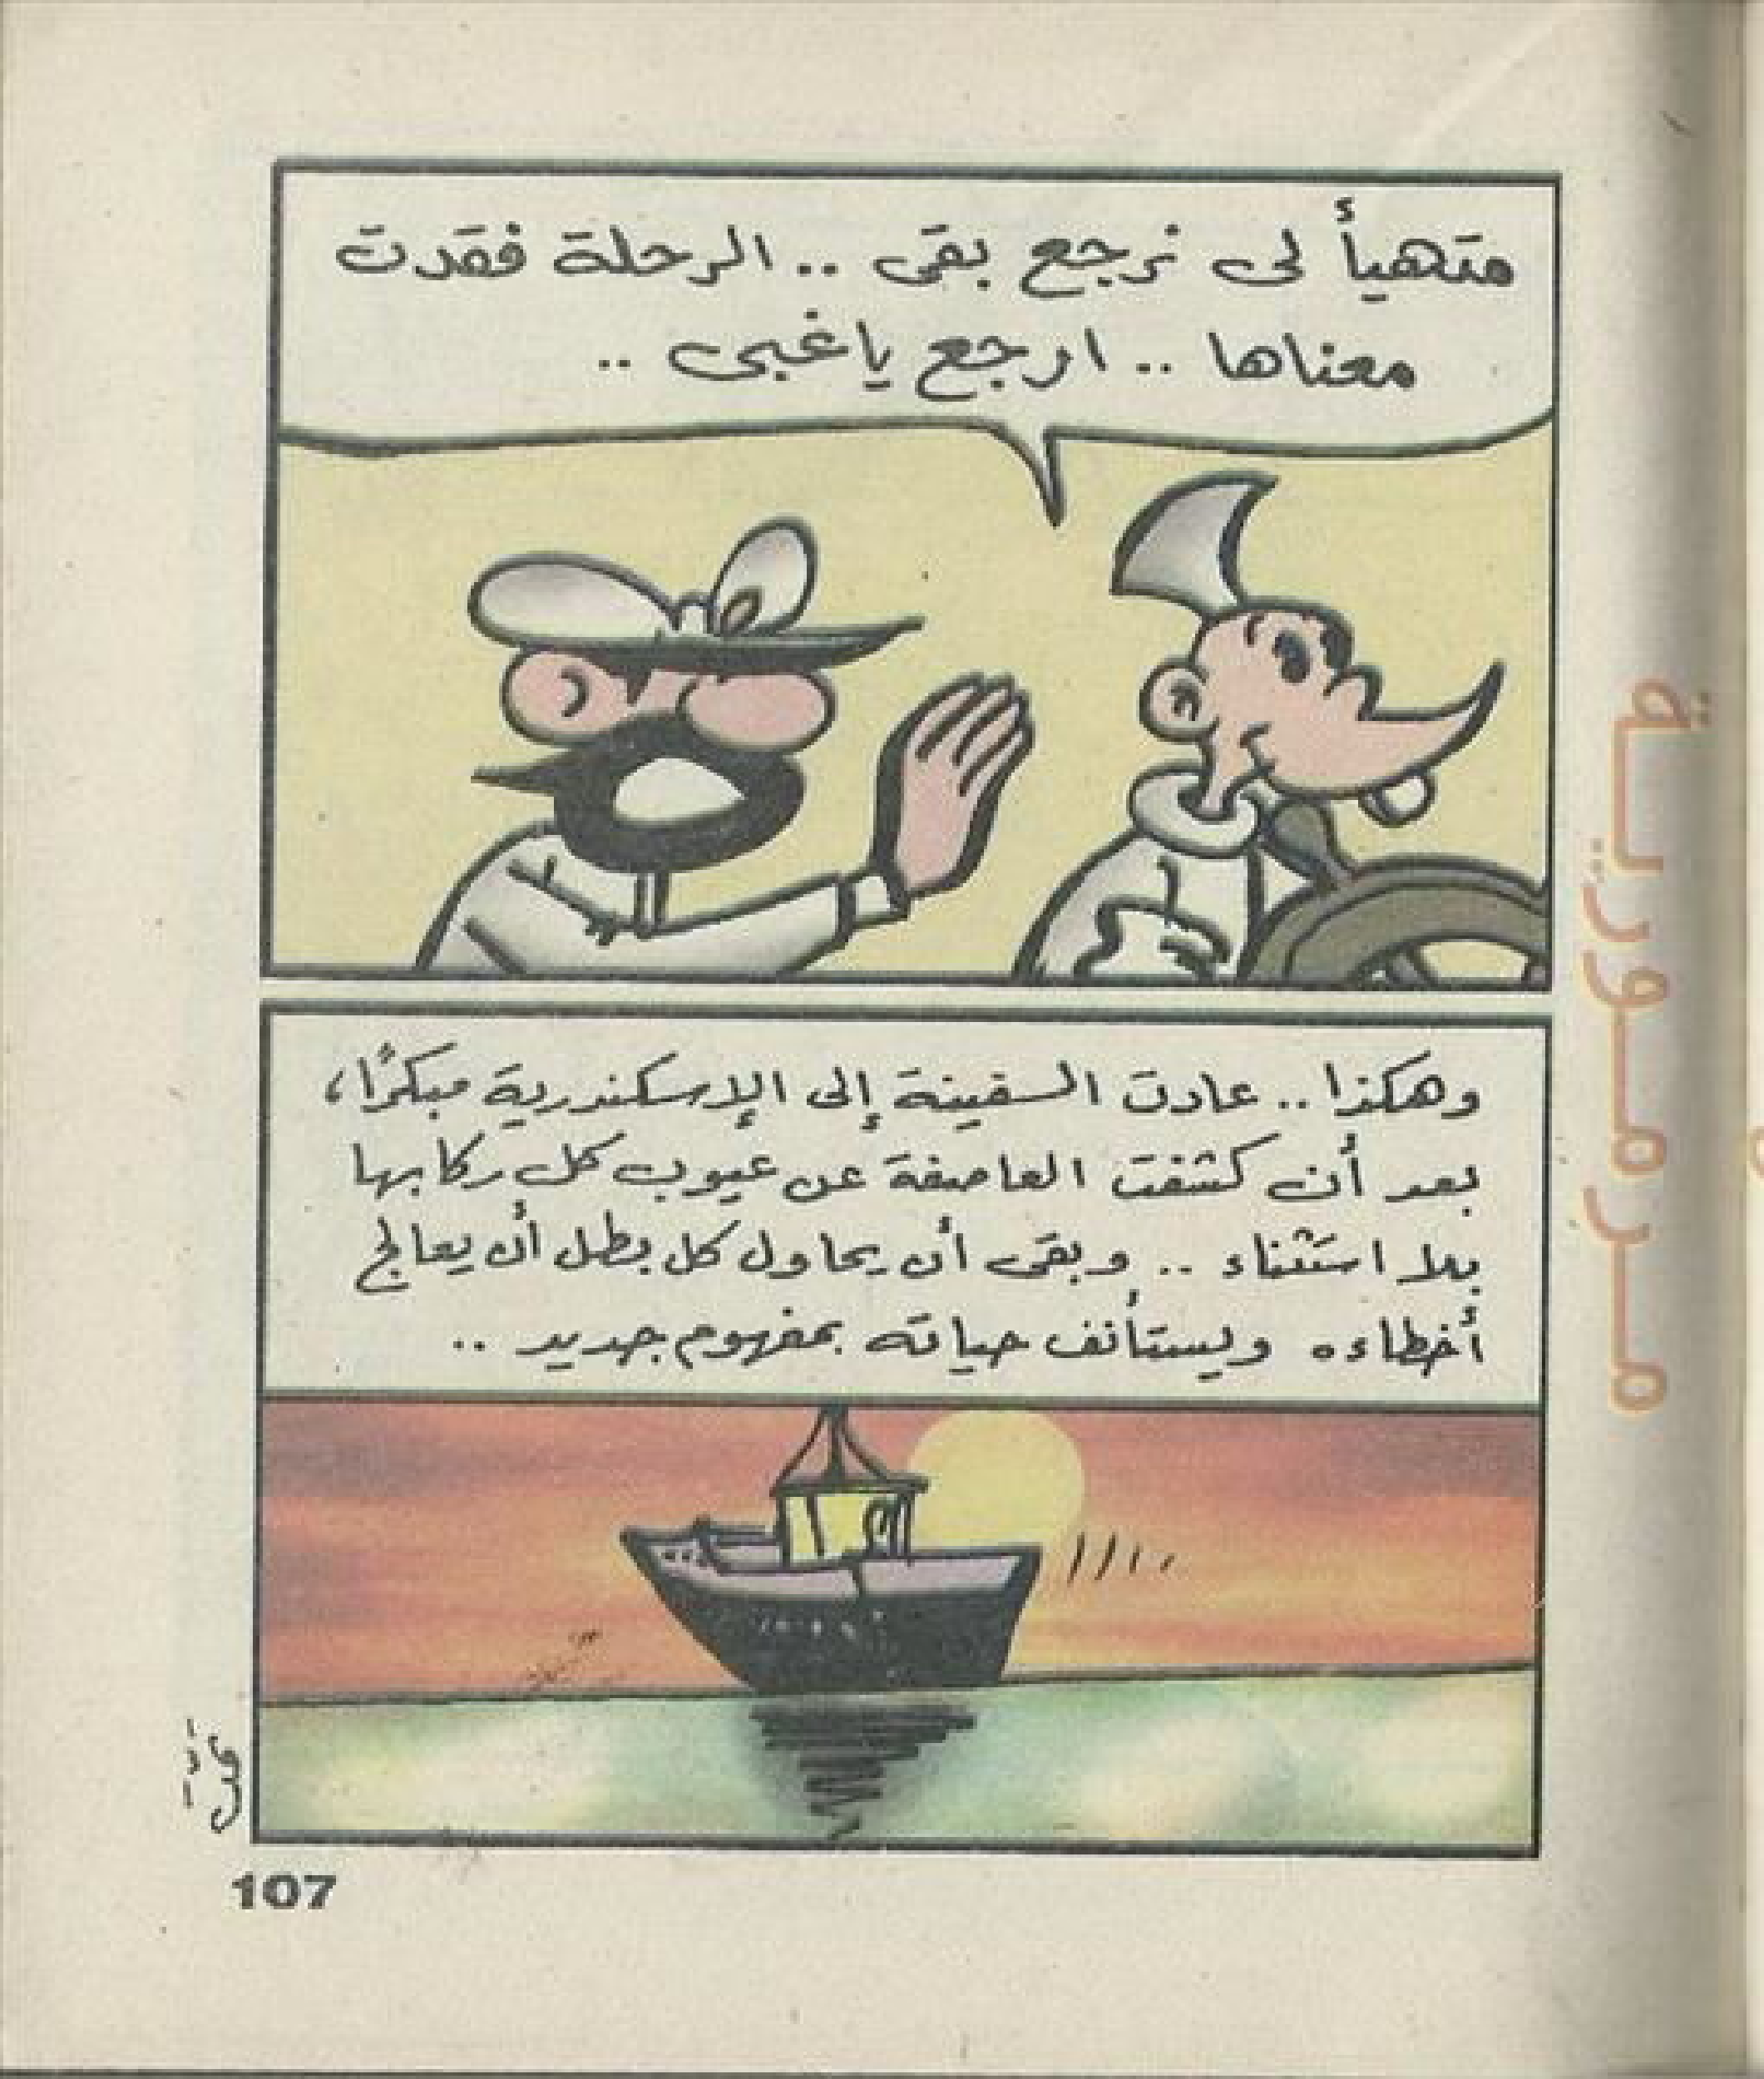 متهيأ لى نرجع بقى .. الرحلة فقدت
معناها .. ارجع ياغبى ..
وهكذا .. عادت السفينة إلى الإسكندرية مبكرًا،
بعد أن كشفت العاصفة عن عيوب كل ركابها
بلا استثناء .. وبقى أن يحاول كل بطل أن يعالج
أخطاءه ويستأنف حياته بمفهوم جديد ..
107
مرمورية